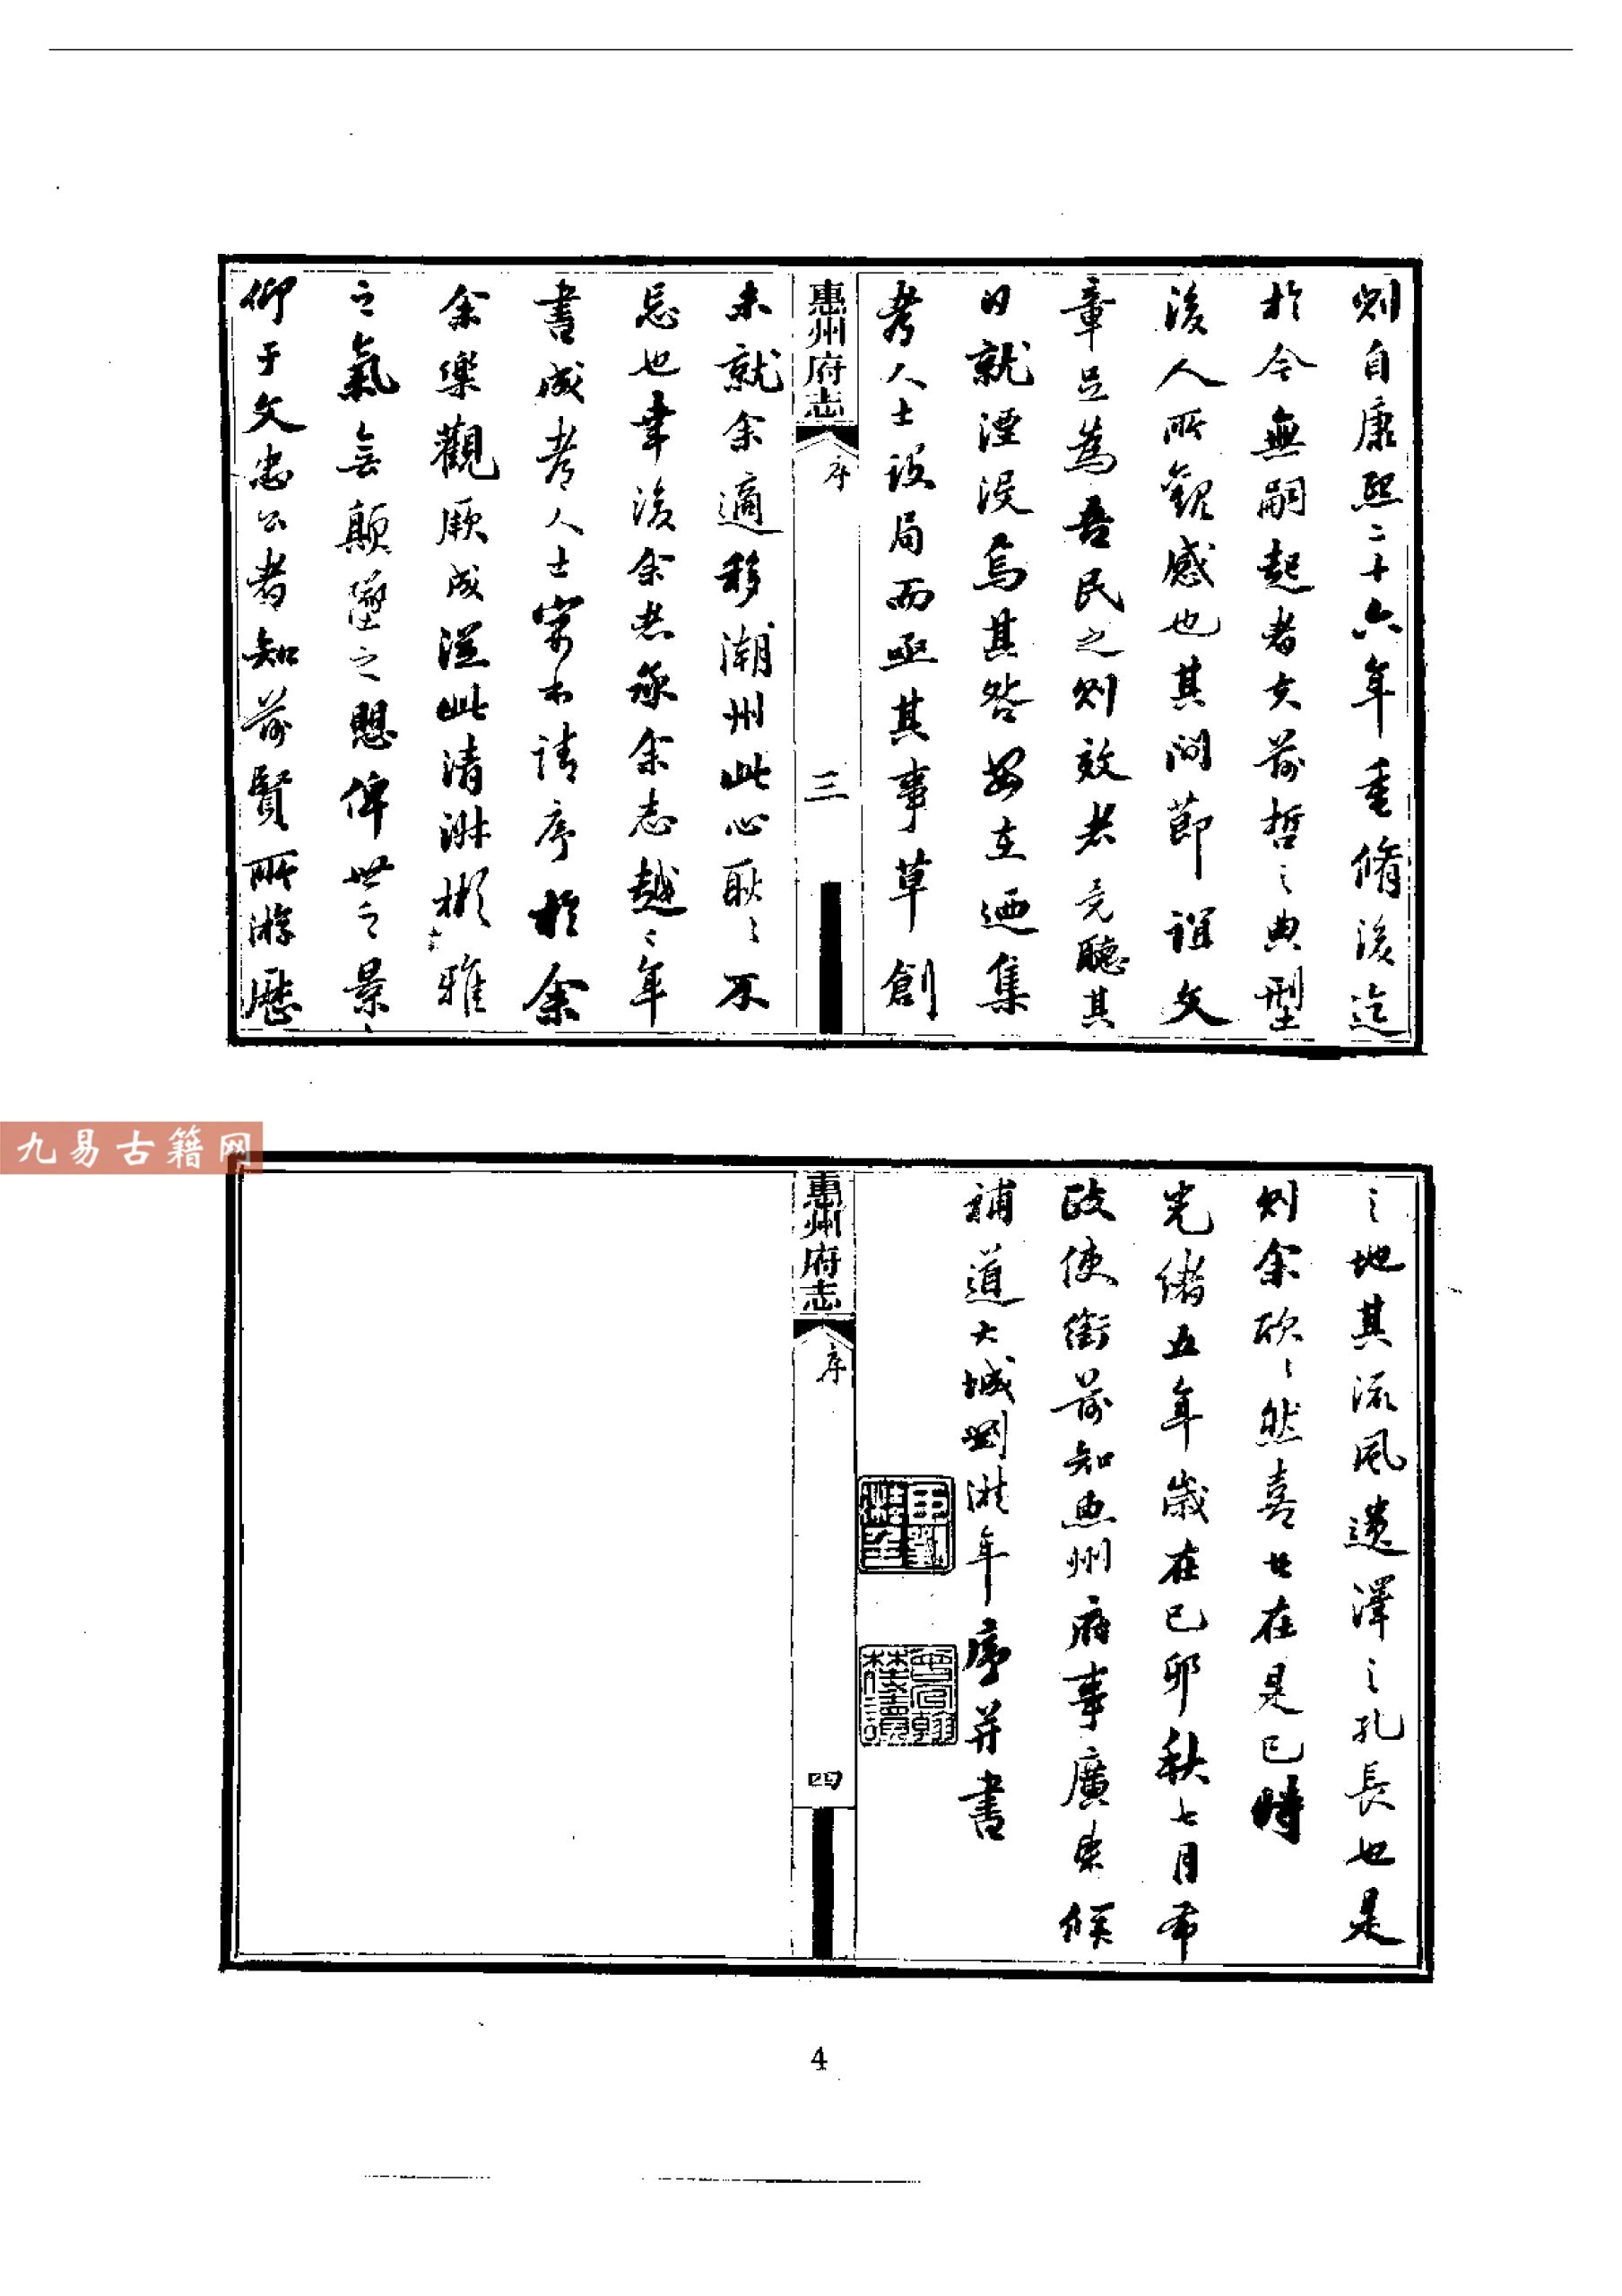 則自康熙二十六年重脩後迄
於今無嗣起者夫前哲之典型
後人所觀感也其問節誼文
章足為吾民之則效者竟聽其
日就湮没焉其咎安在迺集
考人士設局而亟其事草創
惠州府志
序
三
未就余適移潮州此心耿〻不
忘也幸後余者承余志越〻年
書成考人士寄木請序於余
余樂觀厥成溢此清淋彬雅
之氣無顛墜之思俾世之景
仰于文忠公者知前賢所游歷
九易古籍网
之地其流風遺澤之孔長也是
則余欣〻然喜者在是已時
光緒五年歲在己卯秋七月布
政使銜前知惠州府事廣東候
補道大城劉溎年序并書
惠州府志
序
四
4